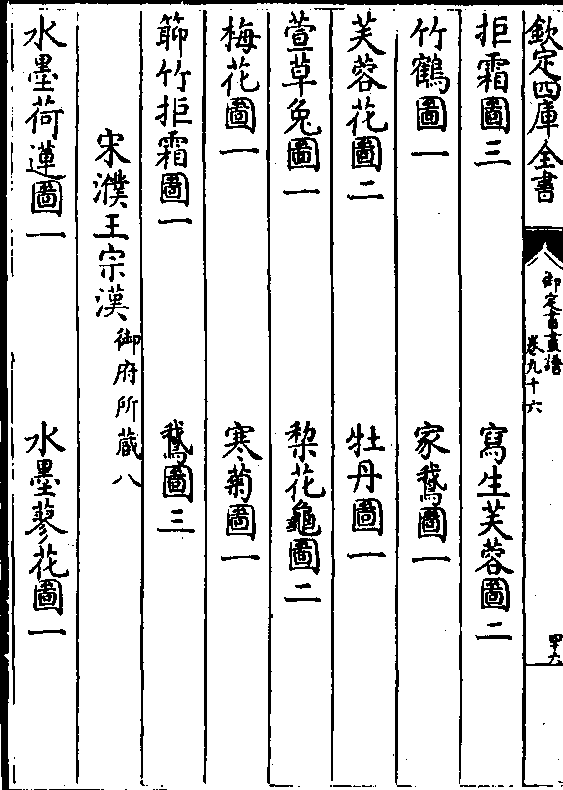 欽定四庫全書
御定書畫譜
卷九十六
四十六
拒霜圖三 寫生芙蓉圖二
竹鶴圖一 家鵝圖一
芙蓉花圖二 牡丹圖一
萱草兔圖一 棃花龜圖二
梅花圖一 寒菊圖一
節竹拒霜圖一 鵝圖三
宋濮王宗漢 御府所藏八
水墨荷蓮圖一 水墨蓼花圖一